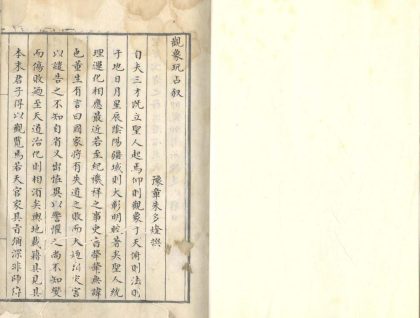 觀象玩占叙
豫章朱多㷿撰
自夫三才既立聖人起焉仰則觀象于天俯則法則
于地日月星辰陰陽疆域則大彰明較著矣聖人統
理運化相應最近若至紀禨祥之事更百葉無諱
也董生有言曰國家將有失道之敗而天廼出災害
以譴告之不知自省又出怪異以警懼之尚不知變
而傷敗廼至天道治化則相湏矣輿地載籍具見其
本末君子得以觀覽焉若天官家其旨淵深非師